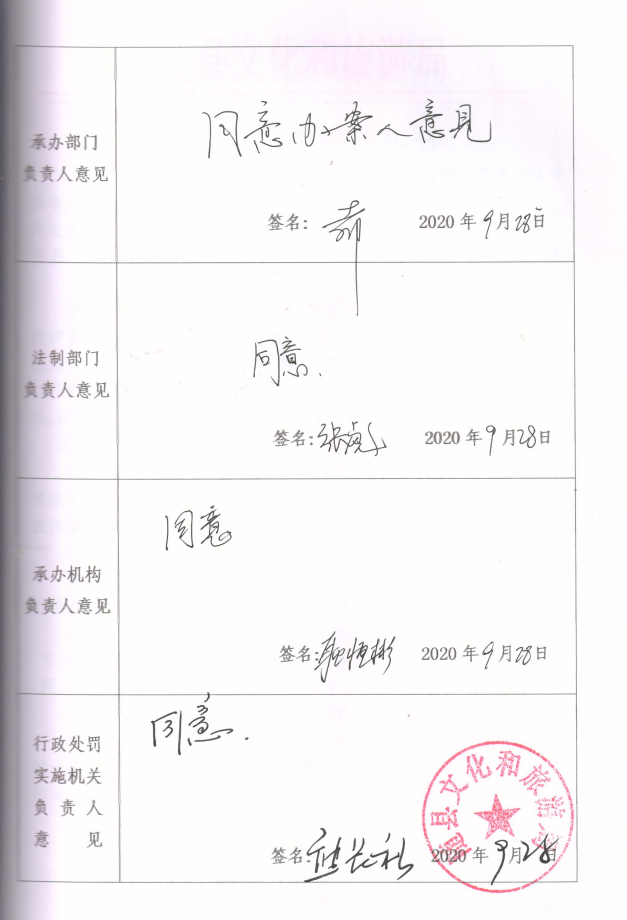 承办部门
负责人意见
同意办案人意见
签名: 2020年9月28日
法制部门
负责人意见
同意.
签名: 2020年9月28日
同意
承办机构
负责人意见
签名: 2020年9月28日
同意.
行政处罚
实施机关
负责人
意见
县文化和旅游局
签名: 2020年9月28日